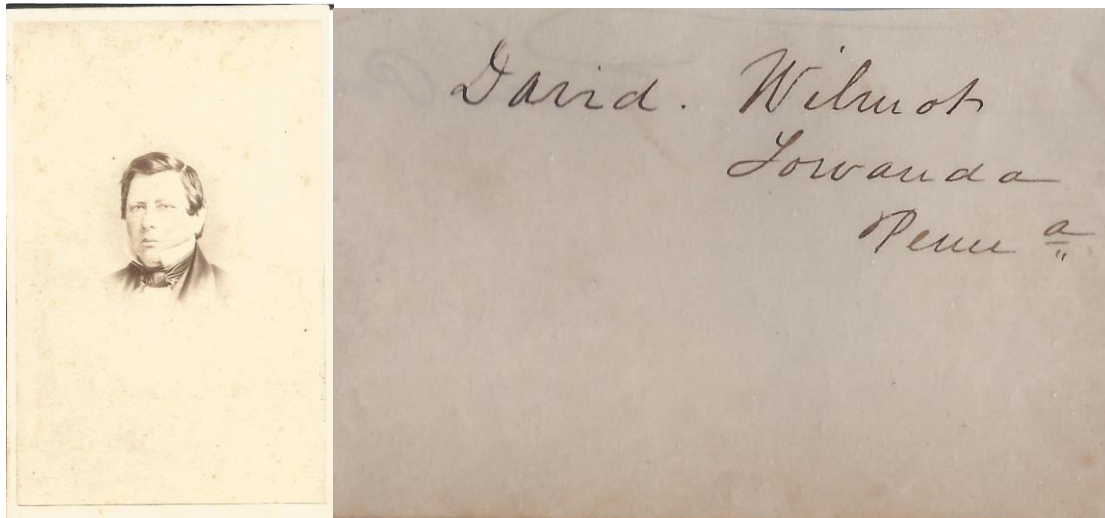 David. Wilmot
Towanda
Penn a